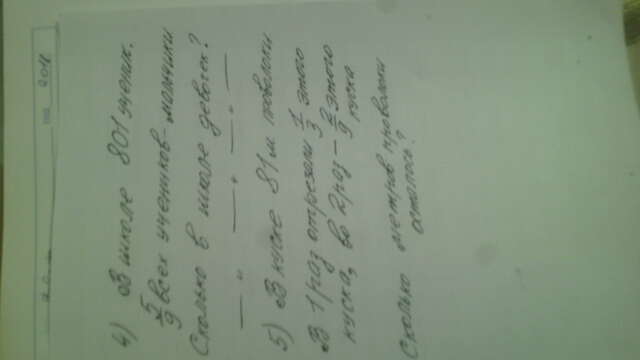 4) В школе 801 ученик.
5/9 всех учеников - мальчики
Сколько в школе девочек?
— " — " — " —
5) В куске 81 м проволоки
В 1 раз отрезали 1/3 этого
куска, во 2 раз - 2/9 этого куска
Сколько метров проволоки
осталось?